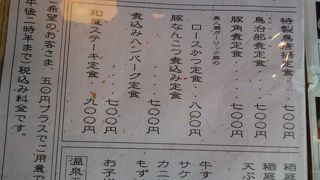 特製鳥唐揚定食・・・七〇〇円
鳥治部煮定食・・・七〇〇円
豚角煮定食・・・・七〇〇円
ガーリック豚の
ロースかつ定食・・・八〇〇円
豚なんこつ煮込み定食・・七〇〇円
煮込みハンバーグ定食・・七〇〇円
和風ステーキ定食・・・九〇〇円
希望のお客さま、五〇円プラスでご用意で
午後二時半まで・税込み料金です。
稲庭
稲庭
天ぷ
牛す
サケ
カニ
もず
お子
温泉